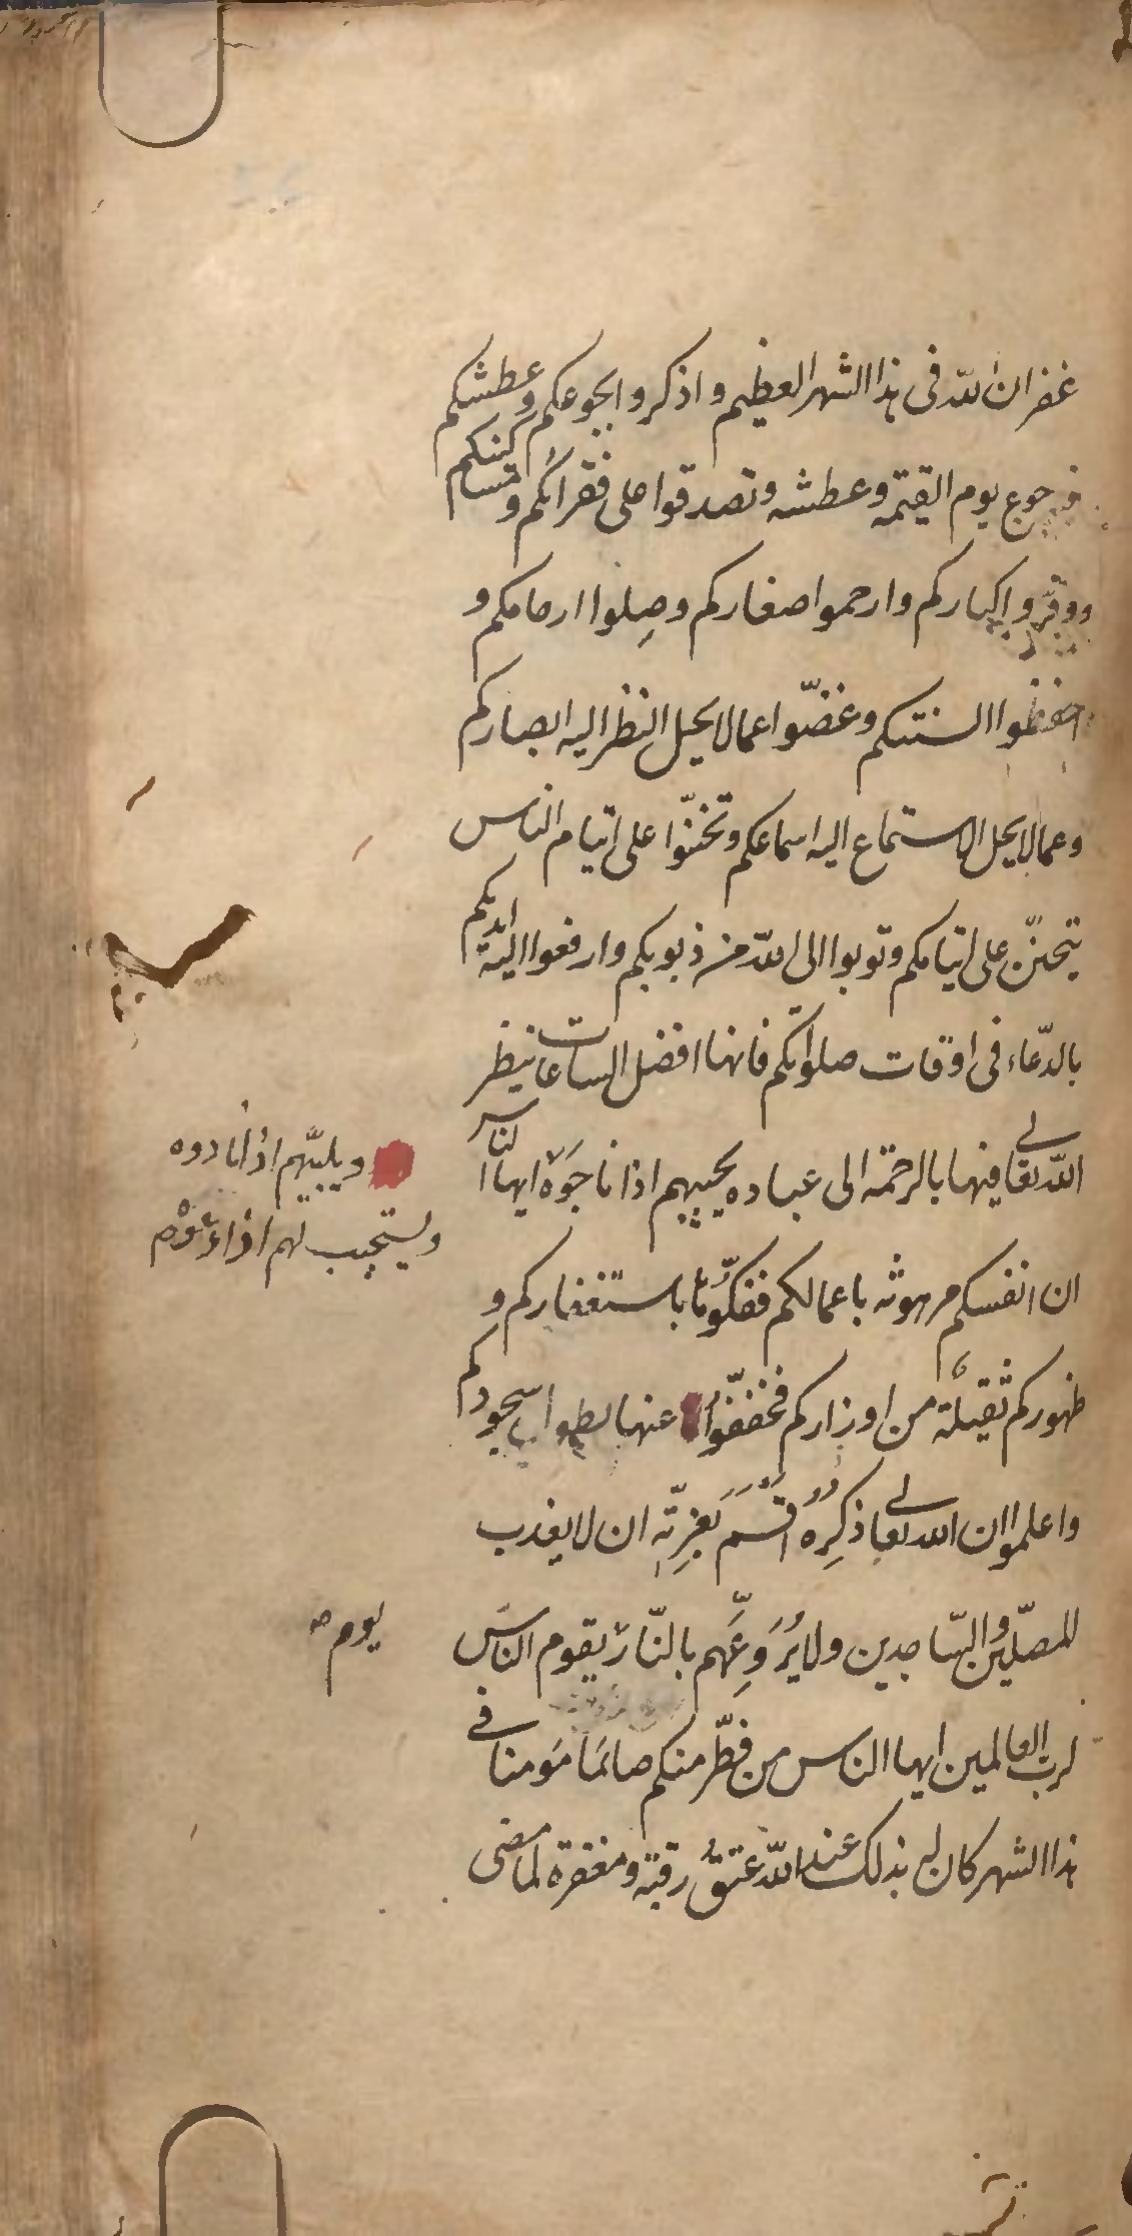 غفران الله فى هذا الشهر العظيم و اذكروا بجوعكم و عطشكم
فيه جوع يوم القيمة و عطشه و تصدقوا على فقرائكم و مساكينكم
و وقّروا كباركم و ارحموا صغاركم و صِلوا ارحامكم و
احفظوا السنتكم و غضّوا عما لا يحل النظر اليه ابصاركم
و عما لا يحل الاستماع اليه اسماعكم و تحننّوا على ايتام الناس
يتحننّ على ايتامكم و توبوا الى الله من ذنوبكم و ارفعوا اليه ايديكم
بالدّعاء فى اوقات صلواتكم فانها افضل الساعات ينظر
الله تعالى فيها بالرحمة الى عباده يجيبهم اذا ناجَوْه ايها الناس
و يلبيّهم اذا نادوه
و يستجيب لهم اذا دعوْه
ان انفسكم مرهونه باعمالكم ففكّوها باستغفاركم و
ظهوركم ثقيلة من اوزاركم فخففّوا عنها بطول سجودكم
و اعلموا ان الله تعالى ذكره اقسم بعزته ان لا يعذب
المصلّين و السّاجدين و لا يروعهم بالنّار يقوم الناس
يوم
لرب العالمين ايها الناس من فطّر منكم صائما مومنا فى
هذا الشهر كان له بذلك عند الله عتق رقبة و مغفرة لما مضى